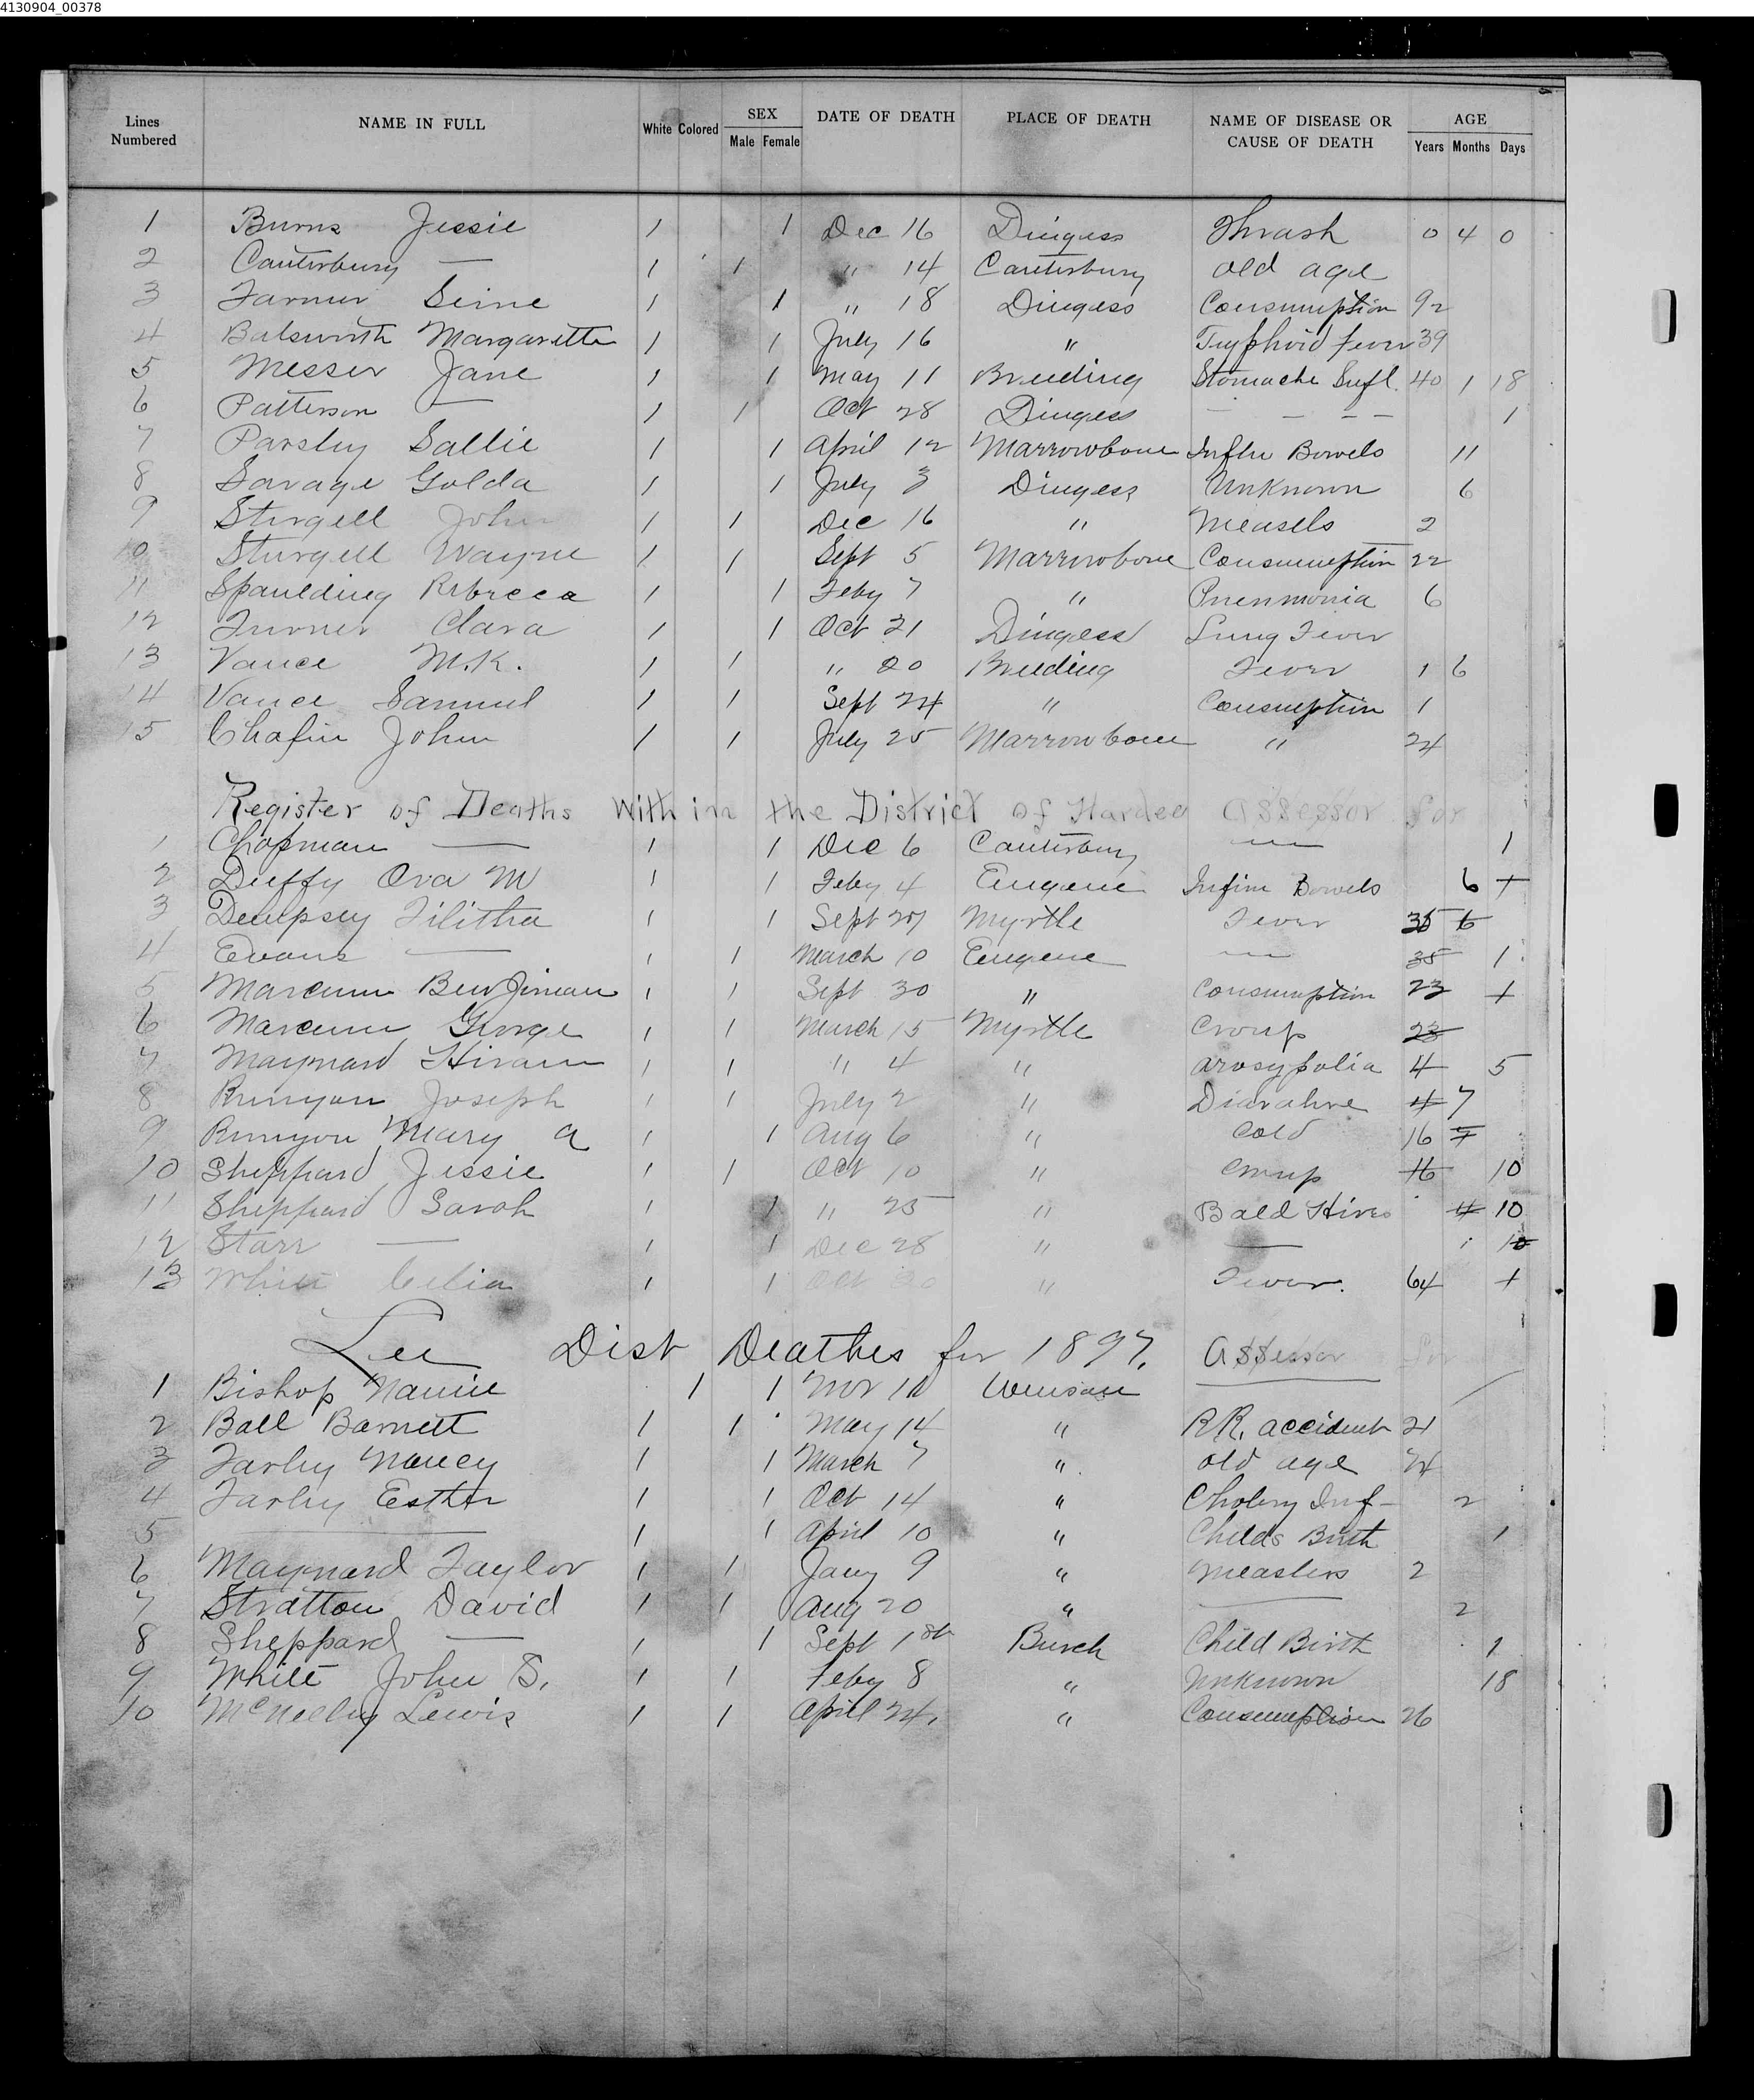 4130904_00378
Lines Numbered NAME IN FULL White Colored SEX Male Female DATE OF DEATH PLACE OF DEATH NAME OF DISEASE OR CAUSE OF DEATH AGE Years Months Days
1 Burns Jessie 1 1 Dec 16 Dingess Thrash 0 4 0
2 Canterbury — 1 1 " 14 Canterbury old age
3 Farmer 1 1 " 18 Dingess Consumption 92
4 Batsworth Margarette 1 1 July 16 " Tryphoid fever 39
5 Messer Jane 1 1 May 11 Breeding Stomache 40 1 18
6 Patterson — 1 1 Oct 28 Dingess — — — — 1
7 Parsley Sallie 1 1 April 12 Marrowbone Bowels 11
8 Savage Golda 1 1 July 3 Dingess Unknown 6
9 Sturgell John 1 1 Dec 16 " Measels 2
10 Sturgell Wayne 1 1 Sept 5 Marrowbone Consumption 22
11 Spaulding Rebecca 1 1 Feby 7 " Pnenmonia 6
12 Turner Clara 1 1 Oct 21 Dingess Lung Fever
13 Vance M.K. 1 1 " 20 Breeding Fever 1 6
14 Vance Samuel 1 1 Sept 24 " Consumption 1
15 Chafin John 1 1 July 25 Marrowbone " 24
Register of Deaths Within the District of Hardee Assessor for
1 Chapman — 1 1 Dec 6 Canterbury — 1
2 Duffy Ova M 1 1 Feby 4 Eugene Bowels 6
3 Dempsey Tilitha 1 1 Sept Myrtle Fever 35 6
4 Evans — 1 1 March 10 Eugene — 35 1
5 Marcum Benjiman 1 1 Sept 30 " Consumption 23
6 Marcum George 1 1 March 15 Myrtle Croup 23
7 Maynard Hiram 1 1 " 4 " arosypolia 4 5
8 Runyon Joseph 1 1 July 2 " 4 7
9 Runyon Mary a 1 1 Aug 6 " Cold 16 7
10 Sheppard Jessie 1 1 Oct 10 " Croup 16 10
11 Sheppard Sarah 1 1 " 25 " Bald Hives 4 10
12 Starr — 1 1 Dec 28 " — 10
13 White Celia 1 1 Oct 20 " Fever. 64
Lee Dist Deathes for 1897. Assessor for
1 Bishop Nannie 1 1 Nov
2 Ball Barnett 1 1 May 14 " RR. accident 21
3 Farley Nancy 1 1 March 7 " old age 74
4 Farley Esther 1 1 Oct 14 " Cholery Inf- 2
5 — 1 1 April 10 " Childs Birth 1
6 Maynard Taylor 1 1 Jany 9 " Measlers 2
7 Stratton David 1 1 Aug 20 " — 2
8 Sheppard — 1 1 Sept 1st Burch Child Birth 1
9 White John S. 1 1 Feby 8 " Unknown 18
10 McNeeley Lewis 1 1 April 24. " Consumption 26